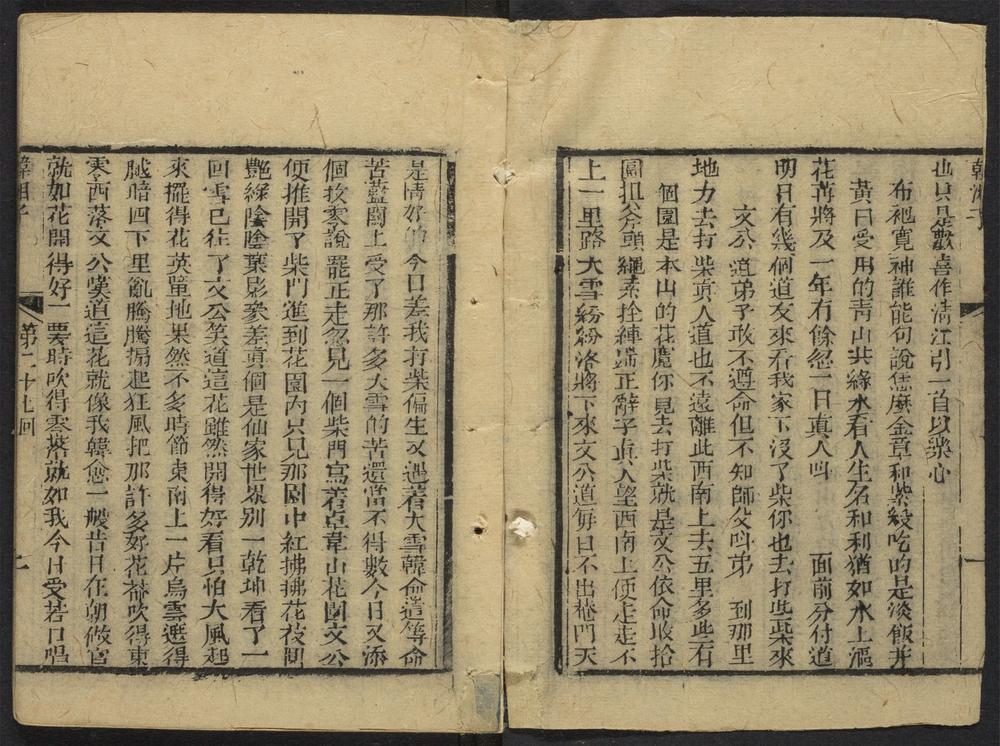 韓湘子
也只是歡喜作清江引一首以樂心
布袍寬袖誰能句說恁麼金章和紫綬吃的是淡飯并
黃曰受用的青山共綠水看人生名和利猶如水上漚
花荏將及一年有餘忽一日真人叫　面前分付道
明日有幾個道友來看我家下沒了柴你也去打些柴來
文公道弟子敢不遵命但不知師父叫弟　到那里
地方去打柴真人道也不遠離此西南上去五里多些有
個園是本山的花園你見去打柴就是文公依命收拾
扁担斧頭繩索拴縛端正辭了真人望西南上便走走不
上一里路大雪紛紛洛將下來文公道每日不出菴門天
是情好的今日差我打柴偏生又遇着大雪韓命這等命
苦藍關上受了那許多大雪的苦還當不得數今日又添
個找零說罷正走忽見一個柴門寫着卓韋山花園文公
便推開了柴門進到花園內只見那園中紅拂拂花枝間
艷綠陰陰葉影參差真個是仙家世界別一乾坤看了一
回雪已住了文公笑道這花雖然開得好看只怕大風起
來擺得花英單地果然不多時節東南上一片烏雲遮得
越暗四下里亂騰騰搧起狂風把那許多好花都吹得東
零西落文公嘆道這花就像我韓愈一般昔日在朝做官
就如花開得好一霎時吹得零落就如我今日受苦口唱
韓湘子
第二十七回